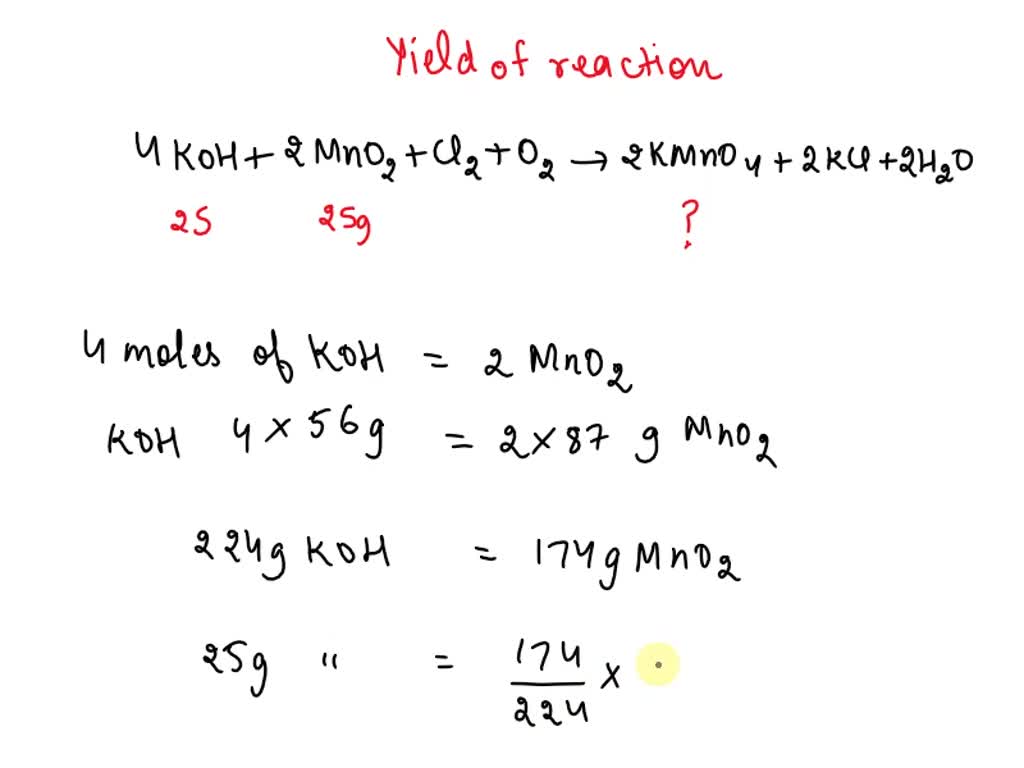 Yield of reaction
4 KOH + 2 MnO₂ + Cl₂ + O₂ → 2 KMnO₄ + 2 KCl + 2H₂O
25 25g ?
4 moles of KOH = 2 MnO₂
KOH 4 × 56g = 2 × 87 g MnO₂
224g KOH = 174g MnO₂
25g " = 174/224 ×